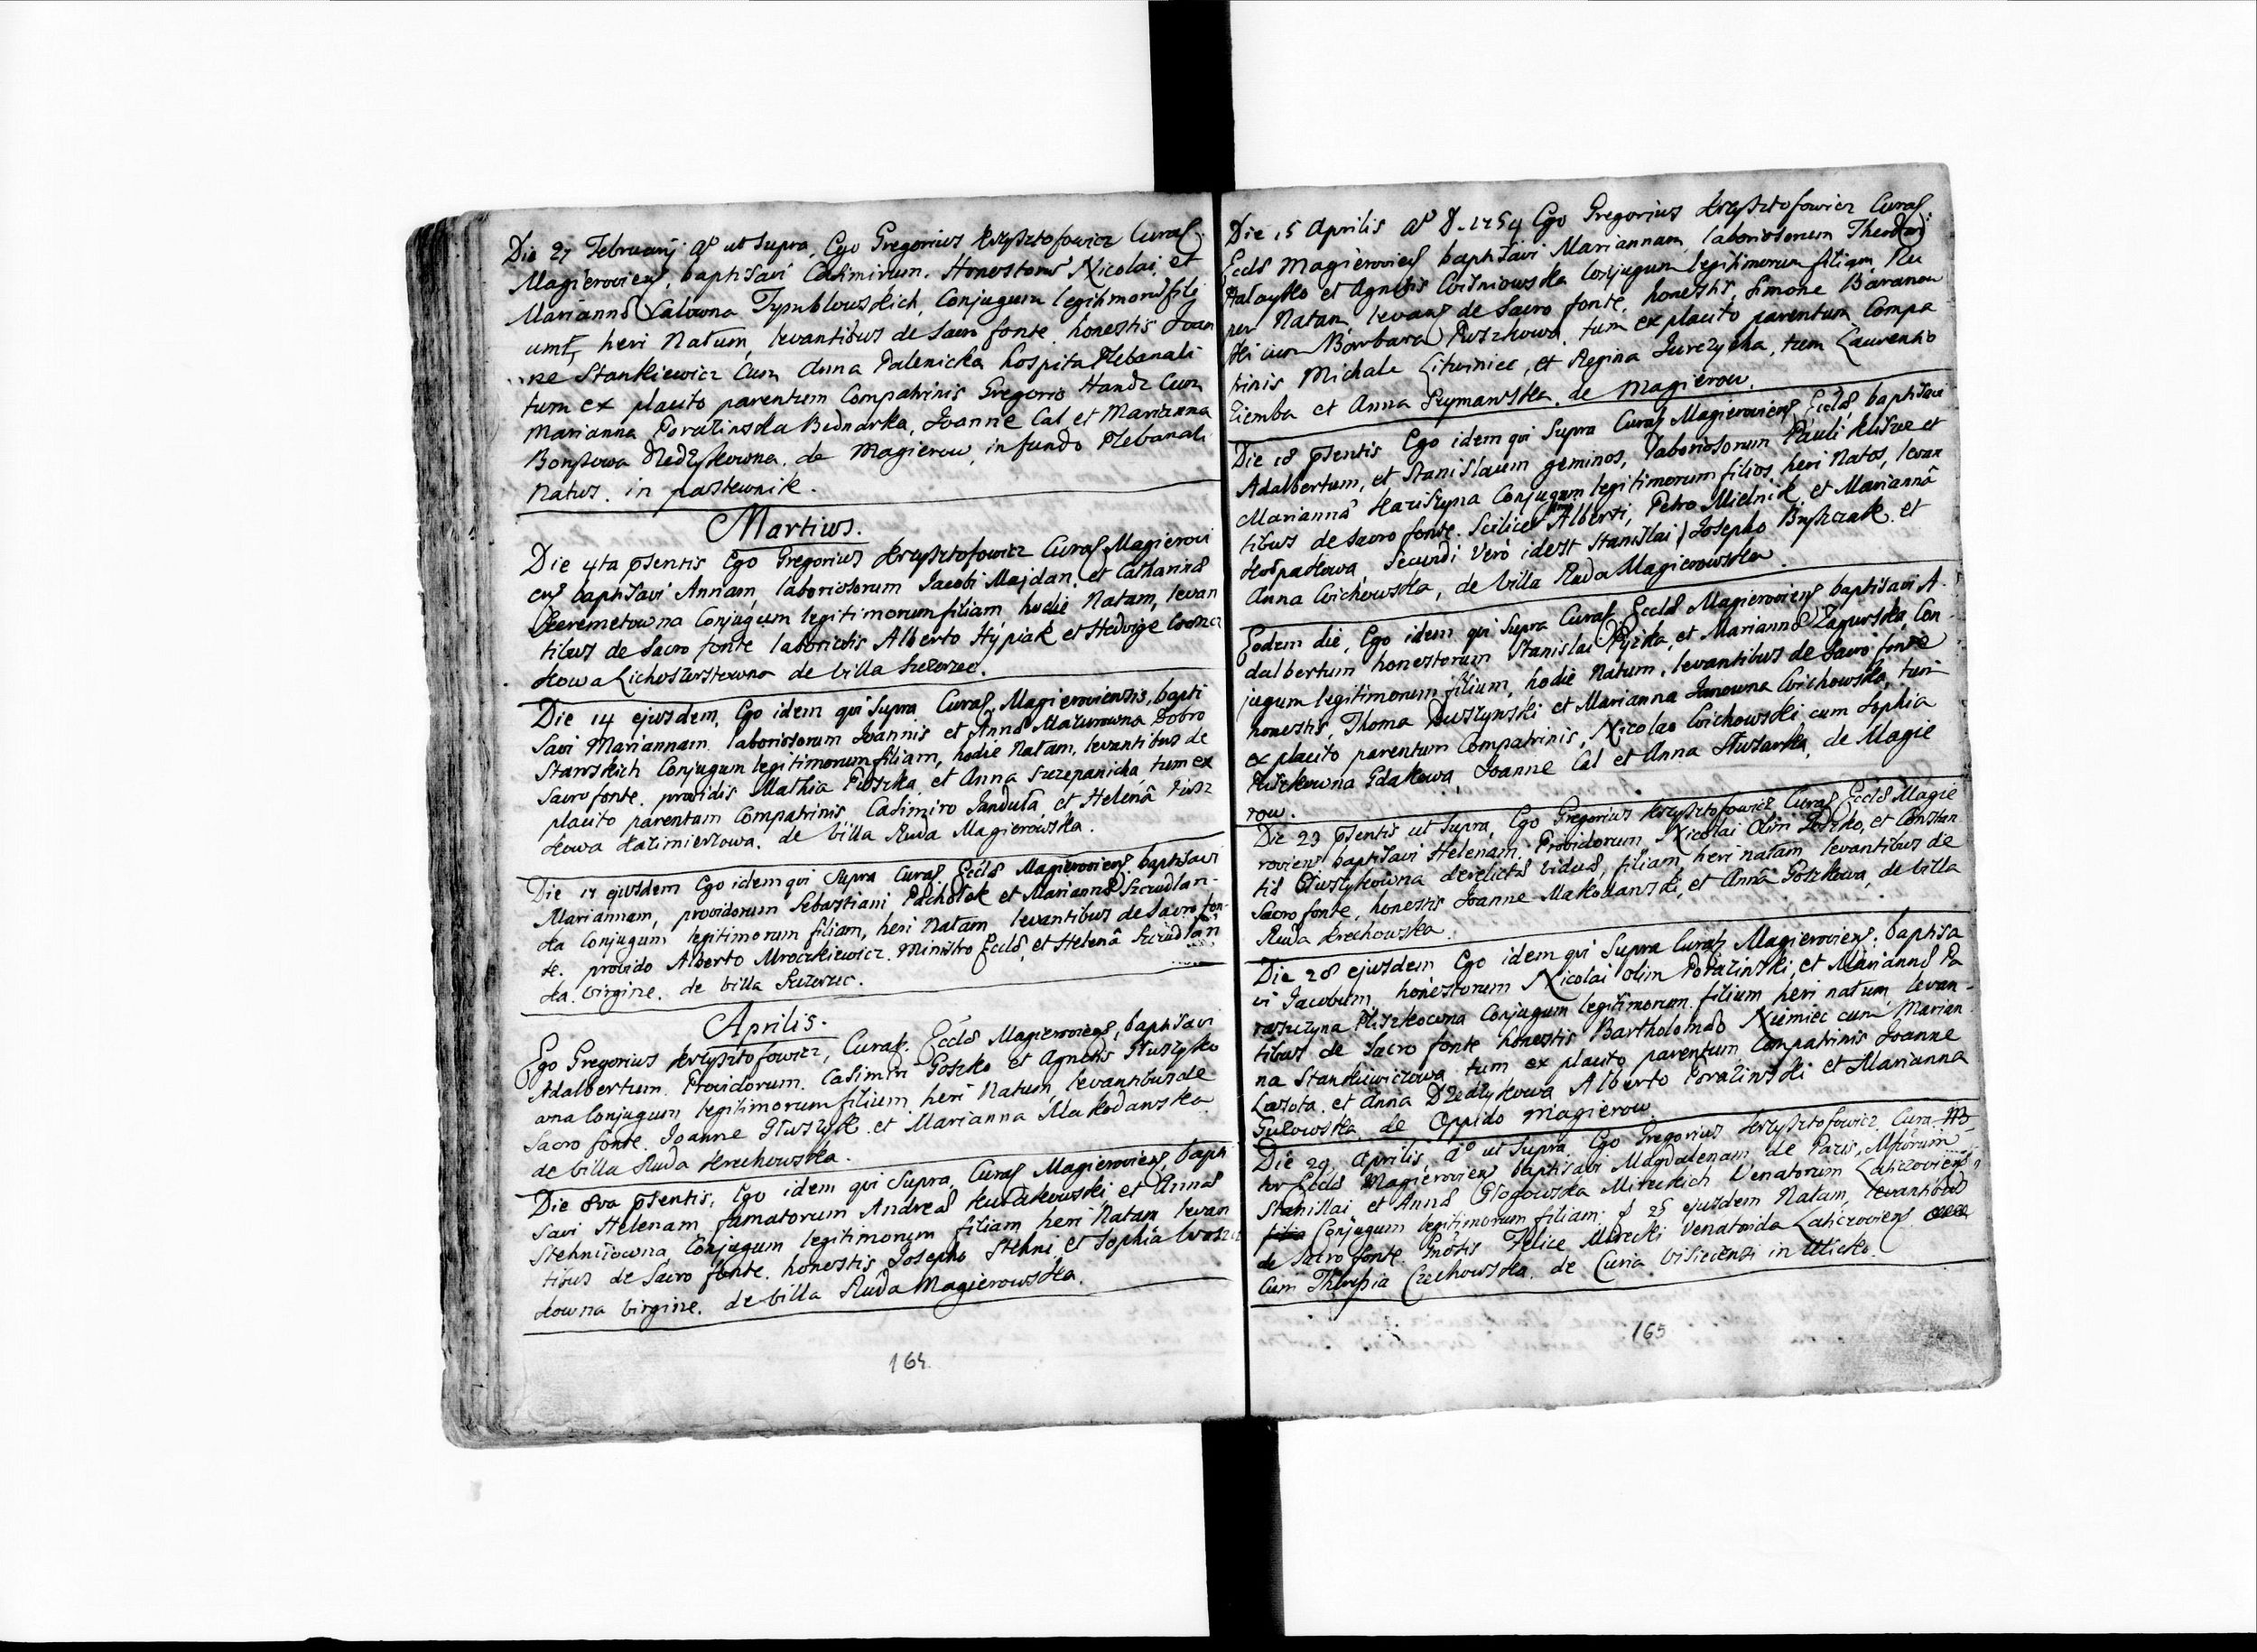 Die 27 Februarij Aº ut supra, Ego Gregorius Krzysztofowicz Curat:
Magieroviens, baptisavi Casimirum. Honestorum Nicolai, et
Mariannæ Calowna Conjugum legitimorum fili
um, heri Natum, levantibus de Sacro fonte honestis Joan
ne Stankiewicz Cum Anna Palenicka hospita Plebanali
tum ex placito parentum Compatrinis Gregorio Handz Cum
Marianna Porazinska Bednarka, Joanne Cal et Marianna
de Magierow, in fundo Plebanali
Natus. in pastewnik.
Martius.
Die 4ta pñsentis Ego Gregorius Krzysztofowicz Curat Magierovi
ens baptisavi Annam, laboriosorum Jacobi Majdan. et Catharinæ
Szeremetowna Conjugum legitimorum filiam hodie Natam, levan
tibus de Sacro fonte laboriosis Alberto Hypiak et Hedvige
de villa Szczerzec.
Die 14 ejusdem, Ego idem qui supra Curat, Magieroviensis, bapti
savi Mariannam. laboriosorum Joannis et Annæ Mazurowna Dobro
Stanskich Conjugum legitimorum filiam, hodie Natam, levantibus de
Sacro fonte. providis Mathia Puszka, et Anna Szczepanicha, tum ex
placito parentum Compatrinis Casimiro Jandula, et Helenâ Pusz
kowa Kazimierzowa. de villa Ruda Magierowska.
Die 17 ejusdem Ego idem qui supra Curat Eccłæ Magieroviens. baptisavi
Mariannam, providorum Sebastiani Pachołek et Mariannæ Szczudlan-
ka Conjugum legitimorum filiam, heri Natam levantibus de Sacro fon-
te. provido Alberto Mroczkiewicz. Ministro Eccłæ, et Helenâ Szczudlan
ka. virgine. de villa Szczerzec.
Aprilis.
Ego Gregorius Krzysztofowicz, Curat. Eccłæ Magieroviens, baptisavi
Adalbertum. Providorum. Casimiri Goszko et Agnetis Głuszyko
wna Conjugum legitimorum filium heri Natum, levantibus de
Sacro fonte. Joanne Głuszyk. et Marianna Makodanska.
de villa Ruda Krechowska.
Die 8va pñsentis, Ego idem qui supra, Curat Magieroviens, bapti
savi Helenam famatorum Andreæ Kułakowski, et Annæ
Stehniiowna Conjugum legitimorum filiam heri Natam levan
tibus de Sacro fonte. honestis Josepho Stehni, et Sophiâ
kowna virgine. de villa Ruda Magierowska.
164.
Die 15 Aprilis Aº D. 1754 Ego Gregorius Krzysztofowicz Curat:
Eccłæ Magieroviens baptisavi Mariannam, laboriosorum Theodori
Hałayko et Agnetis Wisniowska Conjugum legitimorum filiam Nu
per Natam, levant de Sacro fonte, honestis, Simone Baranow
ski cum Barbara Puszkowa, tum ex placito parentum Compa
trinis Michale Litwiniec, et Regina Jurczycha, tum Laurentio
Ziemba et Anna Szymanska. de Magierow.
Die 18 pñsentis Ego idem qui supra Curat Magieroviens Eccłæ, baptisavi
Adalbertum, et Stanislaum geminos, laboriosorum Pauli et
Mariannæ Conjugum legitimorum filios, heri Natos, levan
tibus de Sacro fonte. Scilicet Alberti, Petro Mielnik et Mariannâ
Secundi vero idest Stanislai) Josepho et
Anna Wichowska, de villa Ruda Magierowska.
Eodem die, Ego idem qui supra Curat Eccłæ Magieroviens baptisavi A-
dalbertum honestorum Stanislai Pyzka, et Mariannæ Zagurska, Con-
jugum legitimorum filium, hodie Natum, levantibus de Sacro fonte
honestis, Thoma Duszynski et Marianna Janowna Wichowska, tum
ex placito parentum Compatrinis, Nicolao Wichowski cum Sophia
Puszkowna Gdakowa, Joanne Cal et Anna Slusarka, de Magie
row.
Die 23 pñsentis ut supra, Ego Gregorius Krzysztofowicz Curat Eccłæ Magie
roviens baptisavi Helenam. Providorum Nicolai Olim Goszko, et Constan
tis Głuszykowna derelictæ viduæ, filiam, heri natam levantibus de
Sacro fonte, honestis Joanne Makodanski, et Anna Goszkowa, de villa
Ruda Krechowska.
Die 28 ejusdem Ego idem qui supra Curat Magieroviens. baptisa
vi Jacobum honestorum Nicolai olim Porazinski, et Mariannæ Pa
raszczyna Puszkowna Conjugum legitimorum filium heri natum levan-
tibus de Sacro fonte honestis Bartholomæo Niemiec cum Marian
na Stankiewiczowa, tum ex placito parentum Compatrinis Joanne
Lasota. et Anna Alberto Porazinski et Marianna
de Oppido Magierow.
Die 29 Aprilis, Aº ut supra. Ego Gregorius Krzysztofowicz Cura
tor Eccłæ Magieroviens baptisavi Magdalenam de Paris,
Stanislai, et Annæ Głogowska Mireckich Venatorum
Conjugum legitimorum filiam. 25 ejusdem Natam, levantibus
de Sacro fonte. Felice Mirecki
Cum Czechowska. de Curia in Ulicko.
165